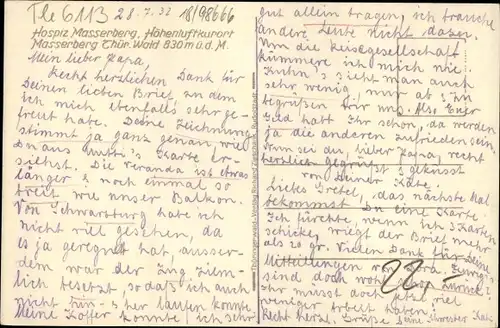 Tle 6113 28.7.33 18/98666
Hospiz Masserberg, Höhenluftkurort
Masserberg Thür. Wald 830 m ü. d. M.
Mein lieber Papa,
Recht herzlichen Dank für
Deinen lieben Brief, zu dem
ich mich ebenfalls sehr ge-
freut habe. Deine Zeichnung
stimmt ja ganz genau, wie
Du aus Mutti's Karte er-
siehst. Die Veranda ist etwas
länger & noch einmal so
breit wie unser Balkon.
Von Schwarzburg habe ich
nicht viel gesehen, da
es ja geregnet hat, ausser-
dem war der Zug ziem-
lich besetzt, so daß ich auch
nicht hin- & her laufen konnte.
Meine Koffer konnte ich sehr
Thüringerwald-Verlag Richard Zieschank, Rudolstadt
gut allein tragen, ich brauche
andere Leute nicht dazu.
Um die Reisegesellschaft
kümmere ich mich nie.
Kuhn's sieht man auch
sehr wenig, nur ab & zu
begrüßen wir uns. Also Euer
Geld habt Ihr schon, da werden
ja die anderen zufrieden sein.
Nun sei du, lieber Papa, recht
herzlich gegrüßt & geküsst
von Deiner Käte.
Liebes Gretel, das nächste Mal
bekommst Du eine Karte.
Ich fürchte, wenn ich 3 Karten
schicke, wiegt der Brief mehr
als 20 gr. Vielen Dank für Deine
Mitteilungen von
sind doch wohl
ihr müsst doch jetzt viel
weniger Arbeit haben.
Recht herzl. Grüße Deine Schwester Käte